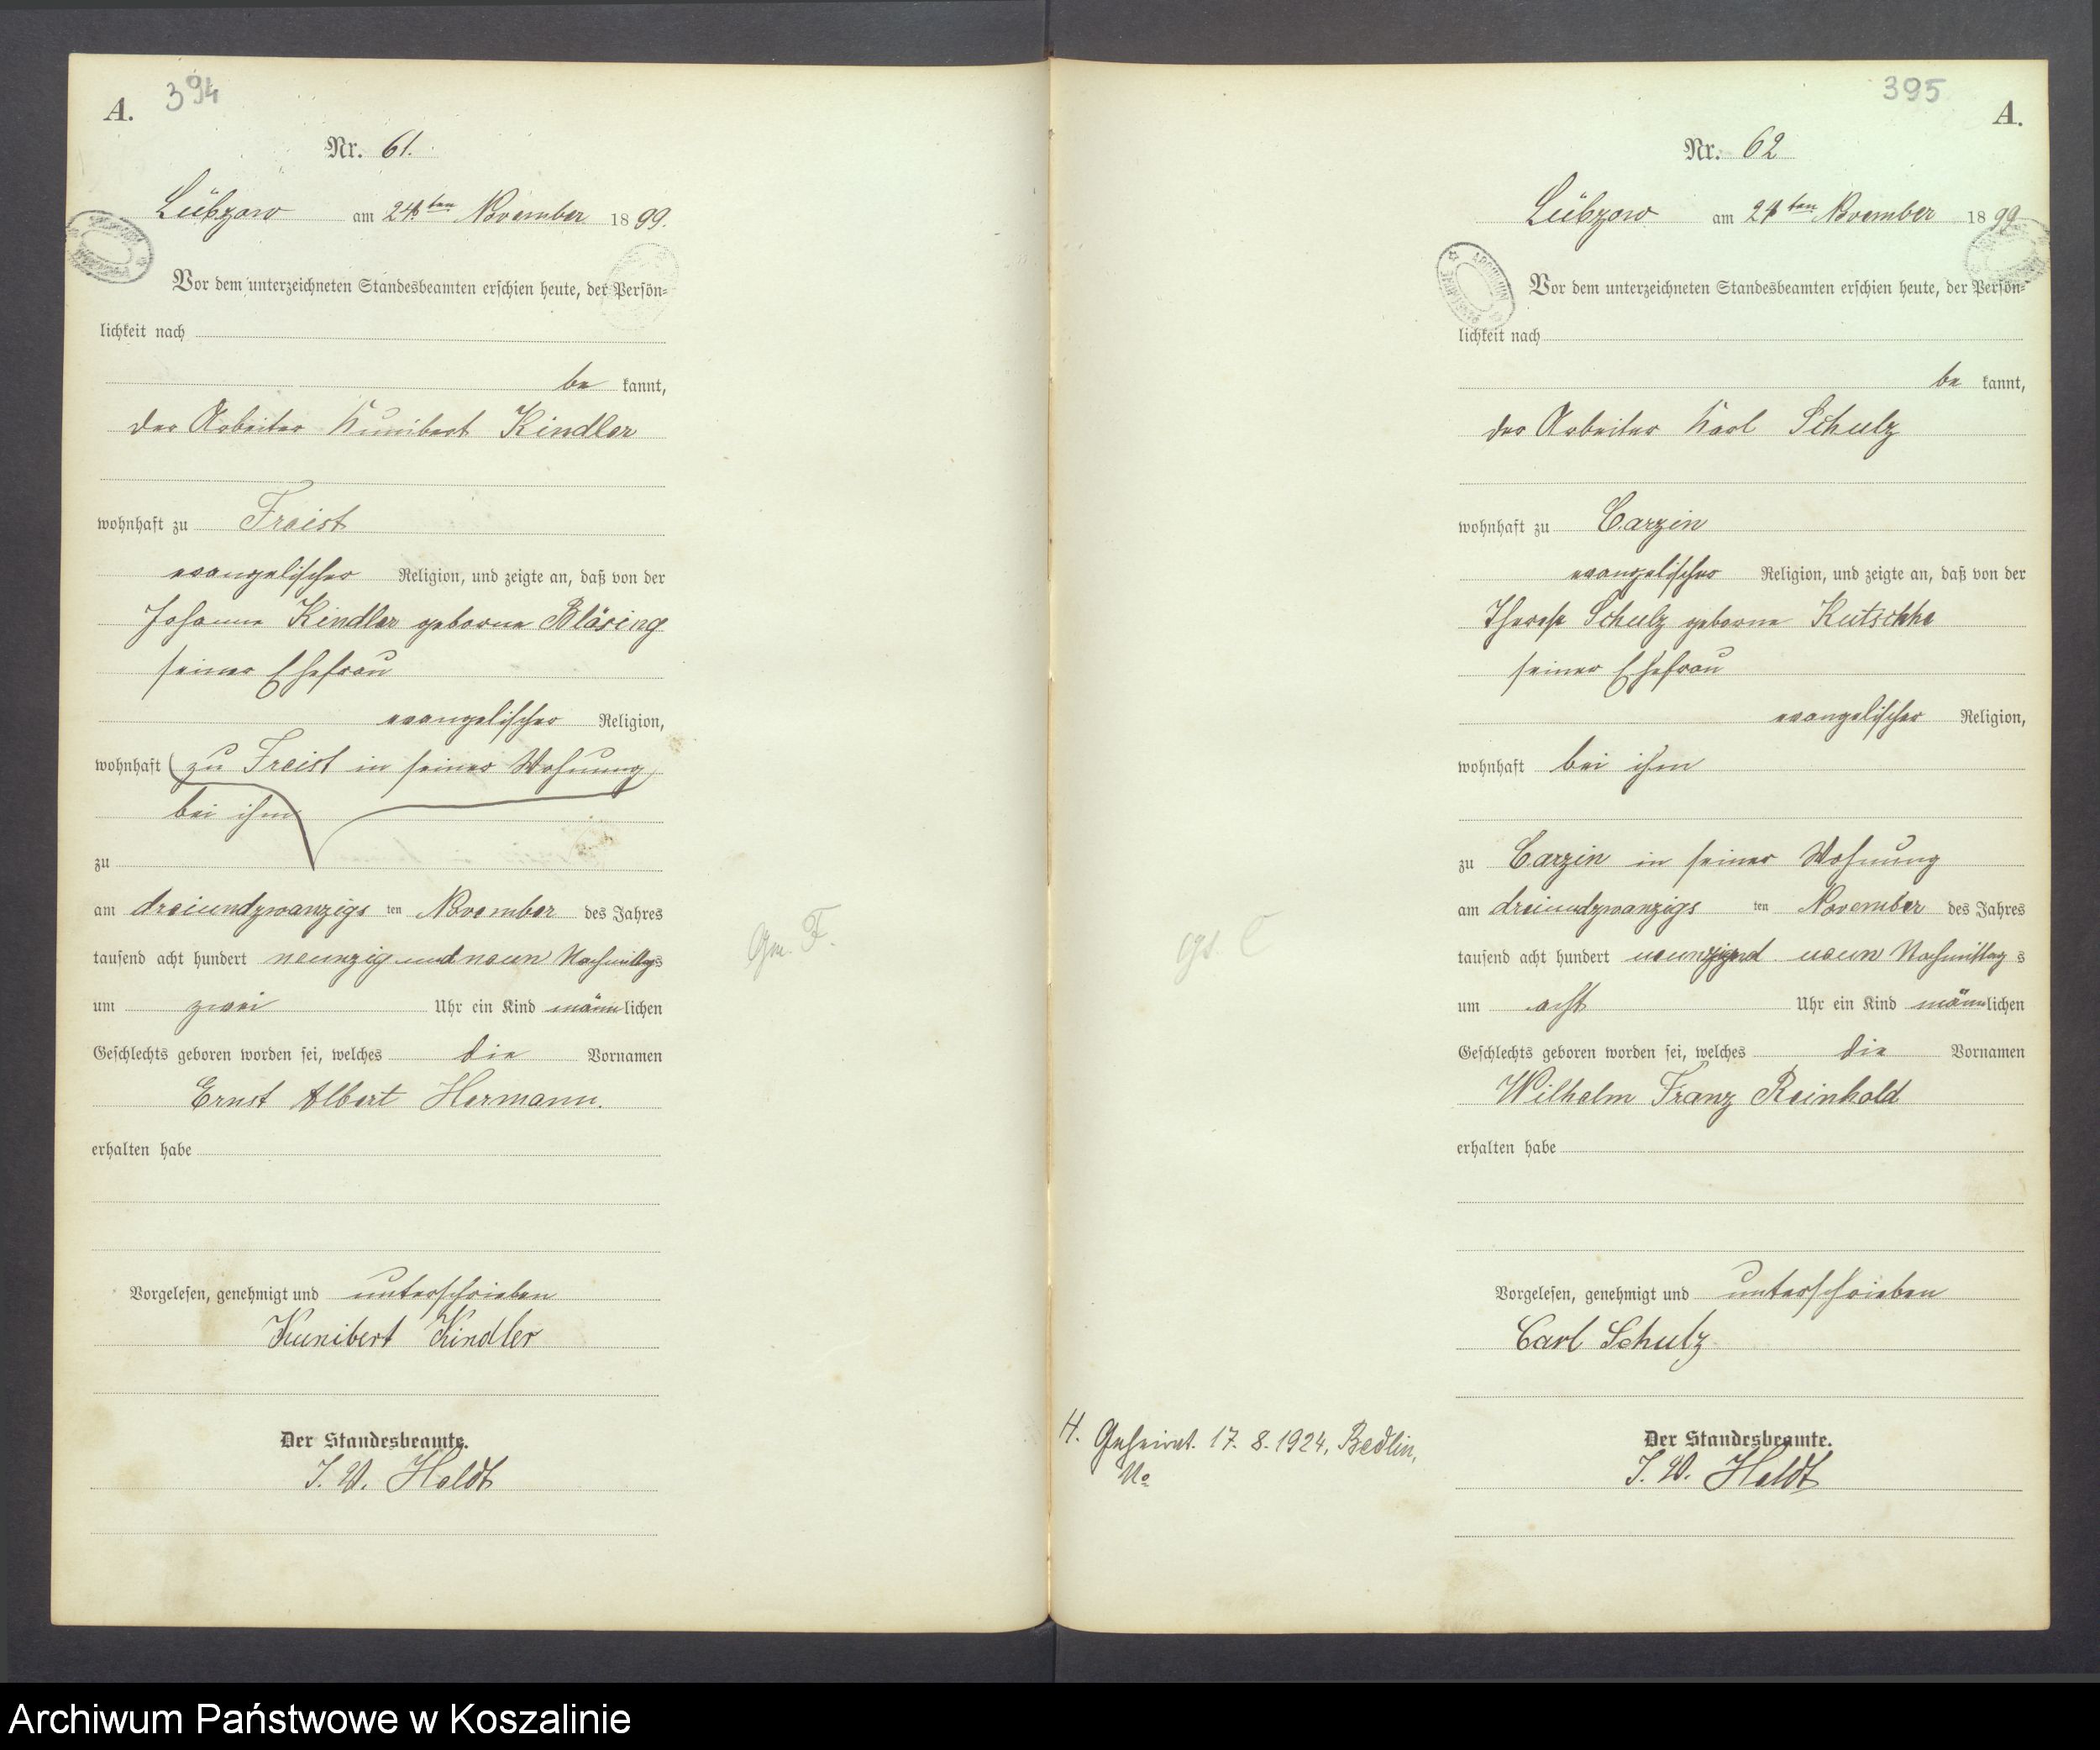 A. 394
Nr. 61.
Lübzow am 24ten November 1899.
Vor dem unterzeichneten Standesbeamten erschien heute, der Persön-
lichkeit nach
be kannt,
der Arbeiter Kunibert Kindler
wohnhaft zu Freist
evangelischer Religion, und zeigte an, daß von der
Johanne Kindler geborne Bläsing
seiner Ehefrau
evangelischer Religion,
wohnhaft (zu Freist in seiner Wohnung)
bei ihm
zu
am dreiundzwanzigs ten November des Jahres
tausend acht hundert neunzig und neun Nachmittags
um zwei Uhr ein Kind männlichen
Geschlechts geboren worden sei, welches die Vornamen
Ernst Albert Hermann.
erhalten habe
Vorgelesen, genehmigt und unterschrieben
Kunibert Kindler
Der Standesbeamte.
I. V. Holdt
395 A.
Nr. 62
Lübzow am 24ten November 1899
Vor dem unterzeichneten Standesbeamten erschien heute, der Persön-
lichkeit nach
be kannt,
der Arbeiter Karl Schulz
wohnhaft zu Carzin
evangelischer Religion, und zeigte an, daß von der
Therese Schulz geborne Kutschke
seiner Ehefrau
evangelischer Religion,
wohnhaft bei ihm
zu Carzin in seiner Wohnung
am dreiundzwanzigs ten November des Jahres
tausend acht hundert neunzigund neun Nachmittag s
um acht Uhr ein Kind männlichen
Geschlechts geboren worden sei, welches die Vornamen
Wilhelm Franz Reinhold
erhalten habe
Vorgelesen, genehmigt und unterschrieben
Carl Schulz
H. Geheirat. 17. 8. 1924, Bedlin,
Der Standesbeamte.
I. V. Holdt
Archiwum Państwowe w Koszalinie